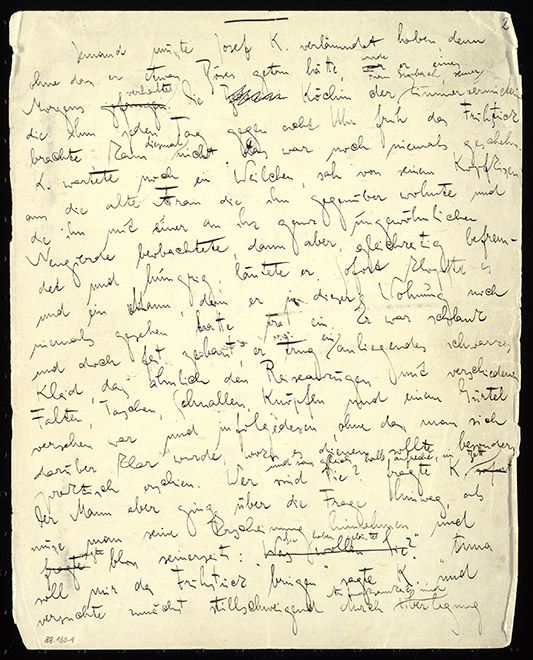 2
Jemand musste Josef K. verläumdet haben, denn
ohne dass er etwas Böses getan hätte, wurde er eines
Frau Grubach, seiner
Morgens verhaftet gefangen. Die Köchin der Zimmervermieterin
die ihm jeden Tag gegen acht Uhr früh das Frühstück
brachte, kam diesmal nicht. Das war noch niemals geschehn.
K. wartete noch ein Weilchen, sah von seinem Kopfkissen
aus die alte Frau die ihm gegenüber wohnte und
die ihn mit einer an ihr ganz ungewöhnlichen
Neugierde beobachtete, dann aber, gleichzeitig befrem-
det und hungrig, läutete er. Sofort klopfte es
und ein Mann, den er in dieser Wohnung noch
niemals gesehen hatte trat ein. Er war schlank
und doch fest gebaut, er trug ein anliegendes schwarzes
Kleid, das ähnlich den Reiseanzügen mit verschiedenen
Falten, Taschen, Schnallen, Knöpfen und einem Gürtel
versehen war und infolgedessen ohne dass man sich
darüber klar wurde, wozu es dienen sollte, besonders
praktisch erschien. Wer sind Sie? fragte K. und sass gleich halb aufrecht im Bett
Der Mann aber ging über die Frage hinweg, als
müsse man seine Erscheinung hinnehmen und
fragte sagte bloss seinerseits: Was wollen Sie? Sie haben geläutet?" "Anna
soll mir das Frühstück bringen" sagte K. und
versuchte zunächst stillschweigend durch Aufmerksamkeit und Überlegung
88.160.1